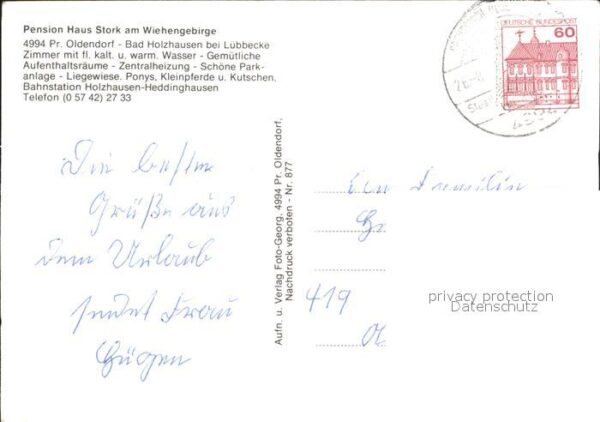 Pension Haus Stork am Wiehengebirge
4994 Pr. Oldendorf - Bad Holzhausen bei Lübbecke
Zimmer mit fl. kalt. u. warm. Wasser - Gemütliche
Aufenthaltsräume - Zentralheizung - Schöne Park-
anlage - Liegewiese. Ponys, Kleinpferde u. Kutschen.
Bahnstation Holzhausen-Heddinghausen
Telefon (0 57 42) 27 33
DEUTSCHE BUNDESPOST
60
Die besten
Grüße aus
dem Urlaub
sendet Frau
Aufn. u. Verlag Foto-Georg, 4994 Pr. Oldendorf,
Nachdruck verboten - Nr. 877
Familie
419
privacy protection
Datenschutz